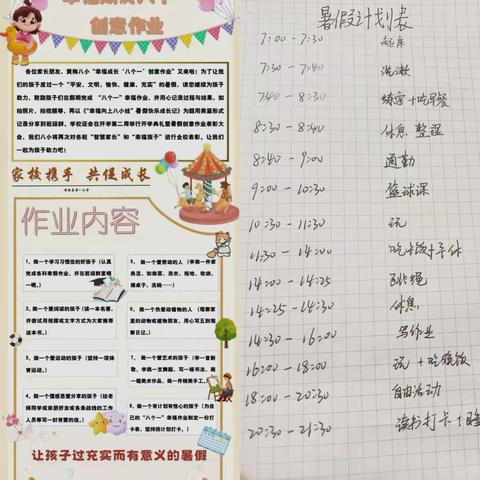 创意作业
各位家长朋友，黄梅八小“幸福成长‘八个一’创意作业”又来啦！为了让我
们的孩子度过一个“平安、文明、愉快、健康、充实”的暑假，请您继续为孩子
助力，鼓励孩子们在假期完成“八个一”幸福作业，并用心记录过程与结果，如
拍照片，拍视频等，再以《“幸福向上八小娃”暑假快乐成长记》为题用美篇形式
记录分享到班级群，学校还会在开学第二周举行开学典礼暨暑假创意作业表彰大
会，我们八小将再次对各班“智慧家长”和“幸福孩子”进行全校表彰，让我们
一起为孩子助力吧！
家校携手 共促成长
作业内容
1、做一个学习习惯佳的好孩子（认真
完成各科寒假作业，并在班级群里晒
一晒。）
2、做一个爱阅读的孩子（读一本名著，
并尝试用视频或文字方式为大家推荐
这本书。）
3、做一个爱运动的孩子（坚持一项体
育运动。）
4、做一个懂感恩爱分享的孩子（给老
师同学或亲朋好友或各条战线的工作
人员等写一封有爱的信。）
5、做一个爱劳动的人（学做一件家
务活，如做菜、洗衣、拖地、收纳、
擦桌子、洗碗……）
6、做一个热爱动植物的人（观察家
里的动物或植物朋友，用心写五到观
察日记。）
7、做一个爱艺术的孩子（学一首新
歌，学跳一支舞蹈，写一幅书法，画
一幅美术作品，做一件精美手工。）
8、做一个有计划有恒心的孩子（为自己
的“八个一”幸福作业制定一份打
卡表，坚持按计划打卡。）
让孩子过充实而有意义的暑假
暑假计划表
7:00-7:30 起床
7:30-7:40 洗漱
7:40-8:30 练字+吃早餐
8:30-8:40 休息 整理
8:40-9:00 通勤
9:00-10:30 篮球课
10:30-11:30 玩
11:30-14:00 吃午饭+午休
14:00-14:25 跳绳
14:25-14:30 休息
14:30-16:00 写作业
16:00-18:00 玩+吃晚饭
18:00-20:30 自由活动
20:30-21:30 读书打卡+